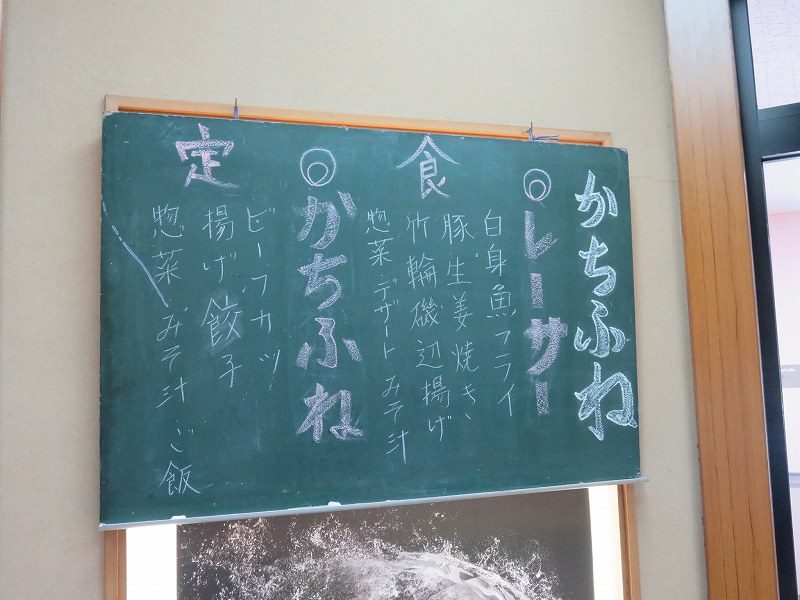 かちふね
◎レーサー
白身魚フライ
豚生姜焼き
竹輪磯辺揚げ
惣菜 デザート みそ汁
食
◎かちふね
ビーフカツ
揚げ餃子
惣菜 みそ汁 ご飯
定